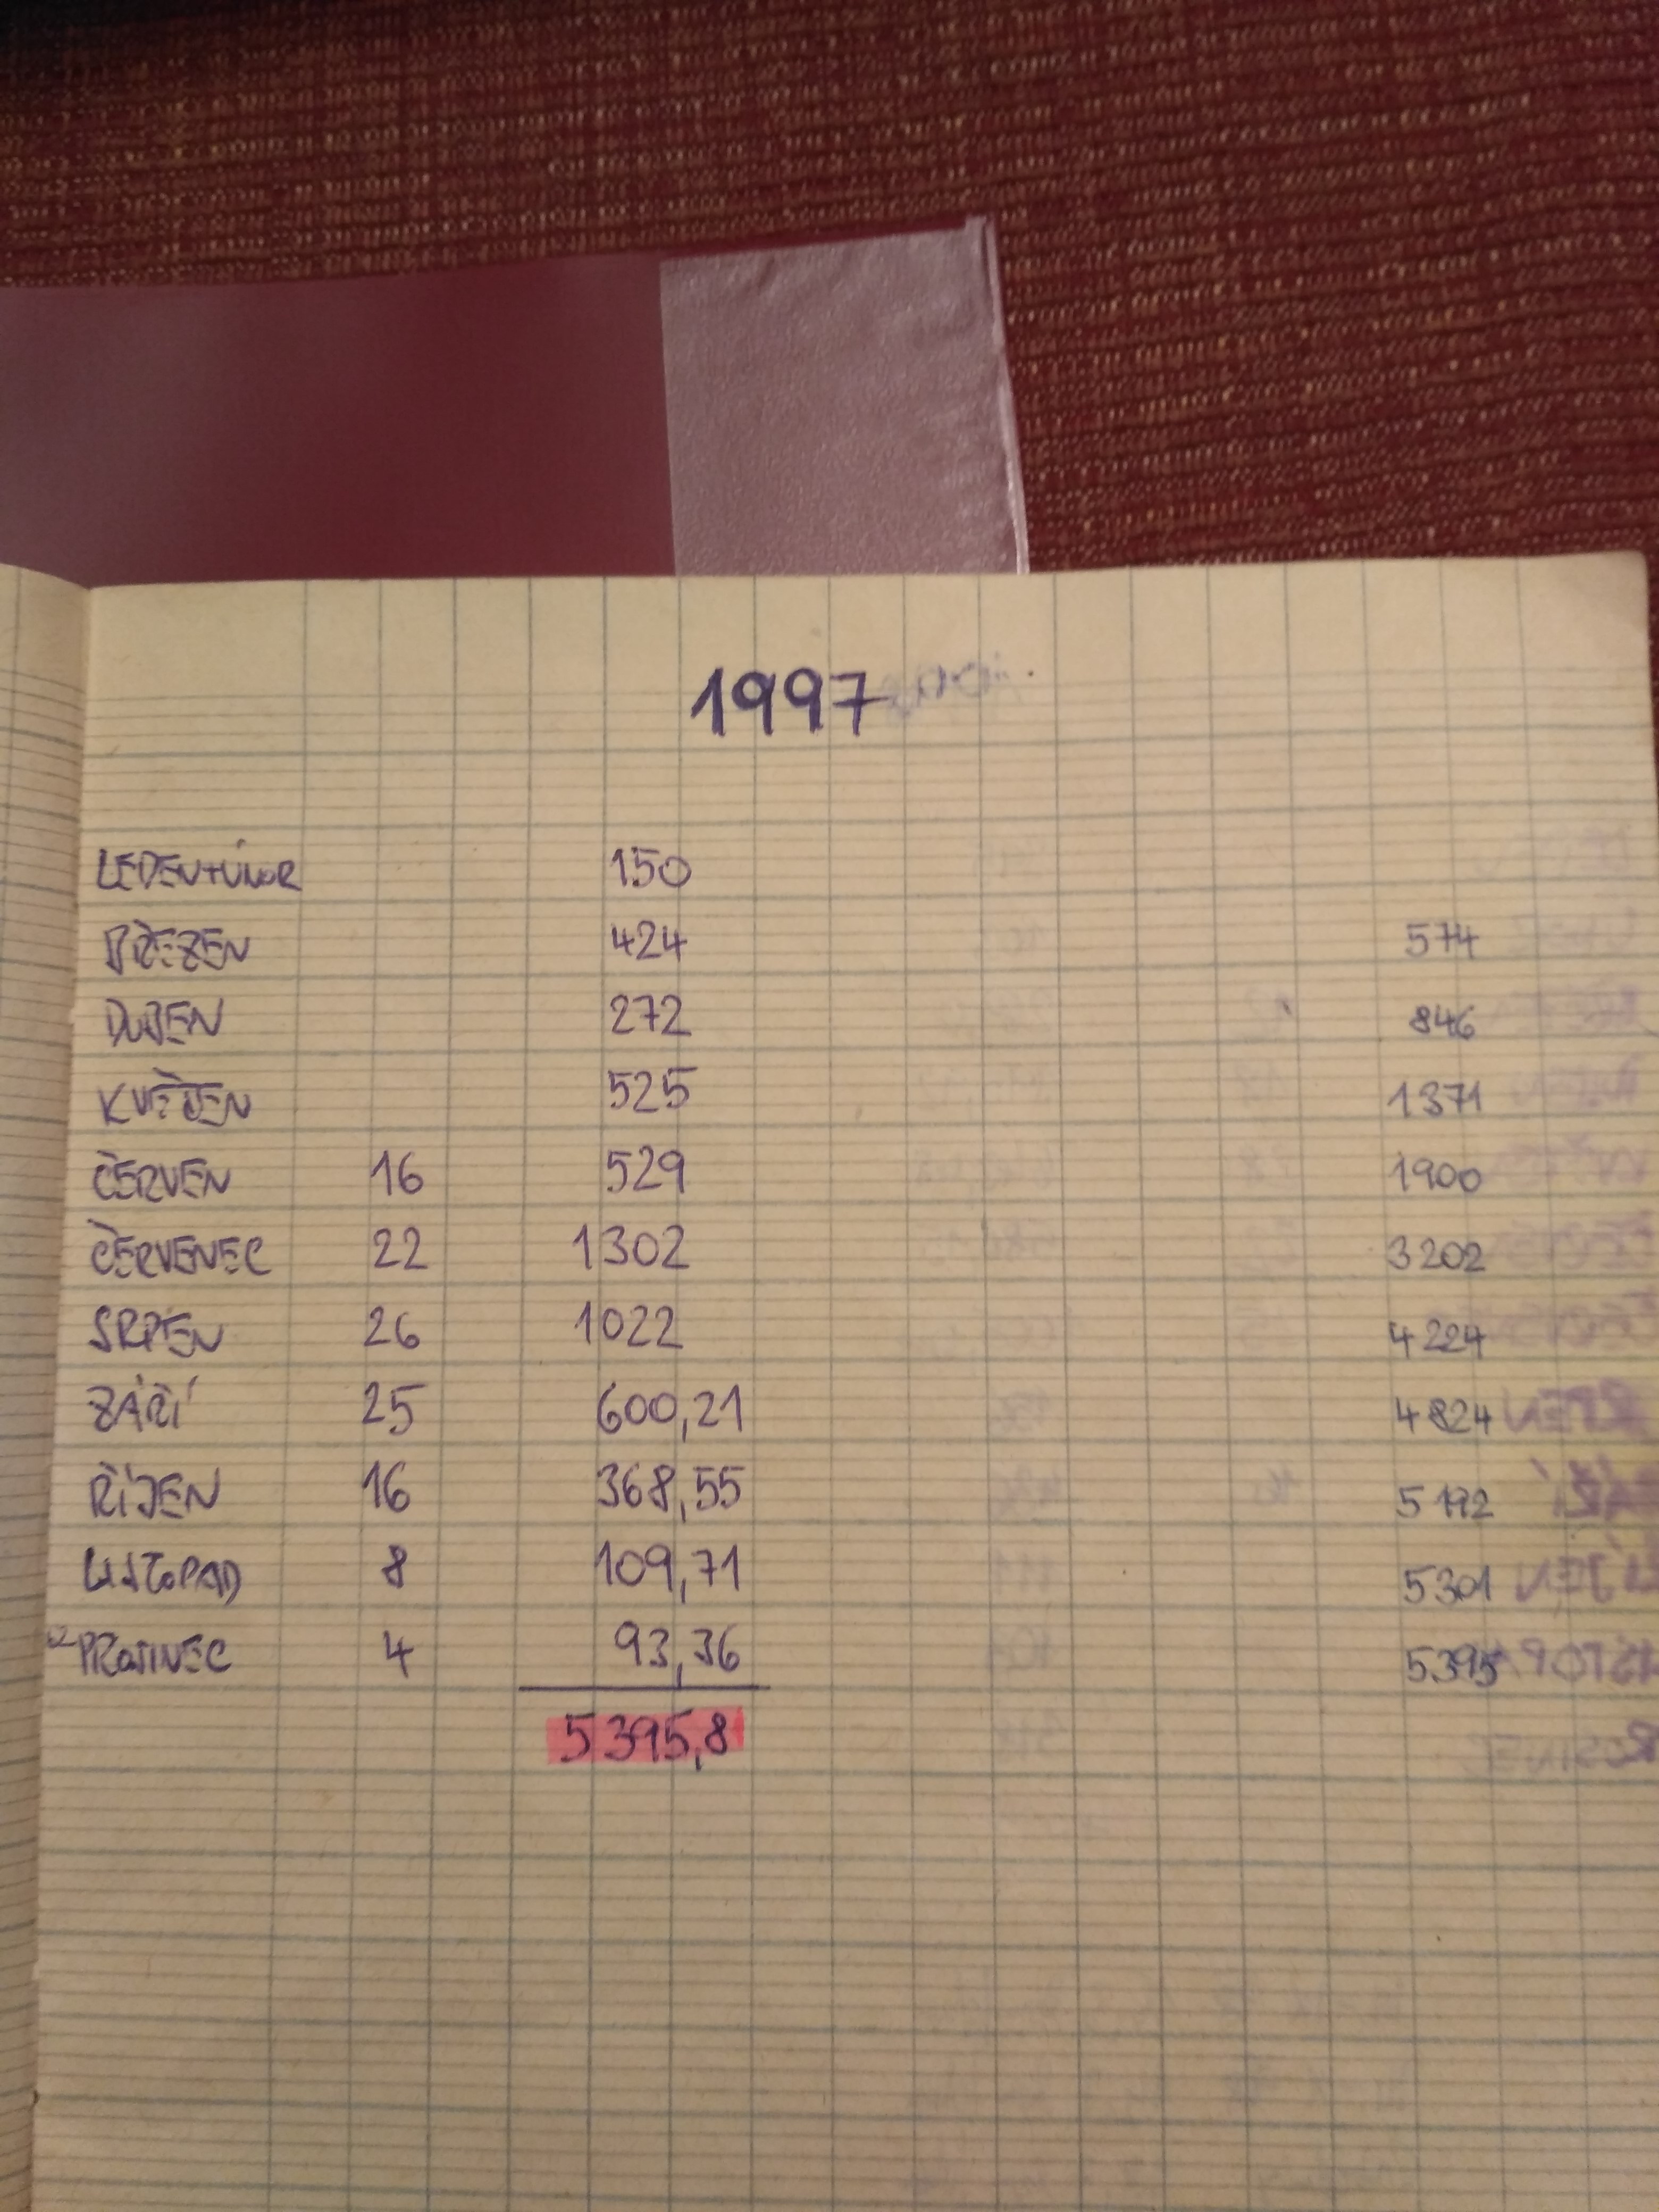 1997
LEDEN+ÚNOR 150
BŘEZEN 424 574
DUBEN 272 846
KVĚTEN 525 1371
ČERVEN 16 529 1900
ČERVENEC 22 1302 3202
SRPEN 26 1022 4224
ZÁŘÍ 25 600,21 4824
ŘÍJEN 16 368,55 5192
LISTOPAD 8 109,71 5301
PROSINEC 4 93,36 5395
5395,8